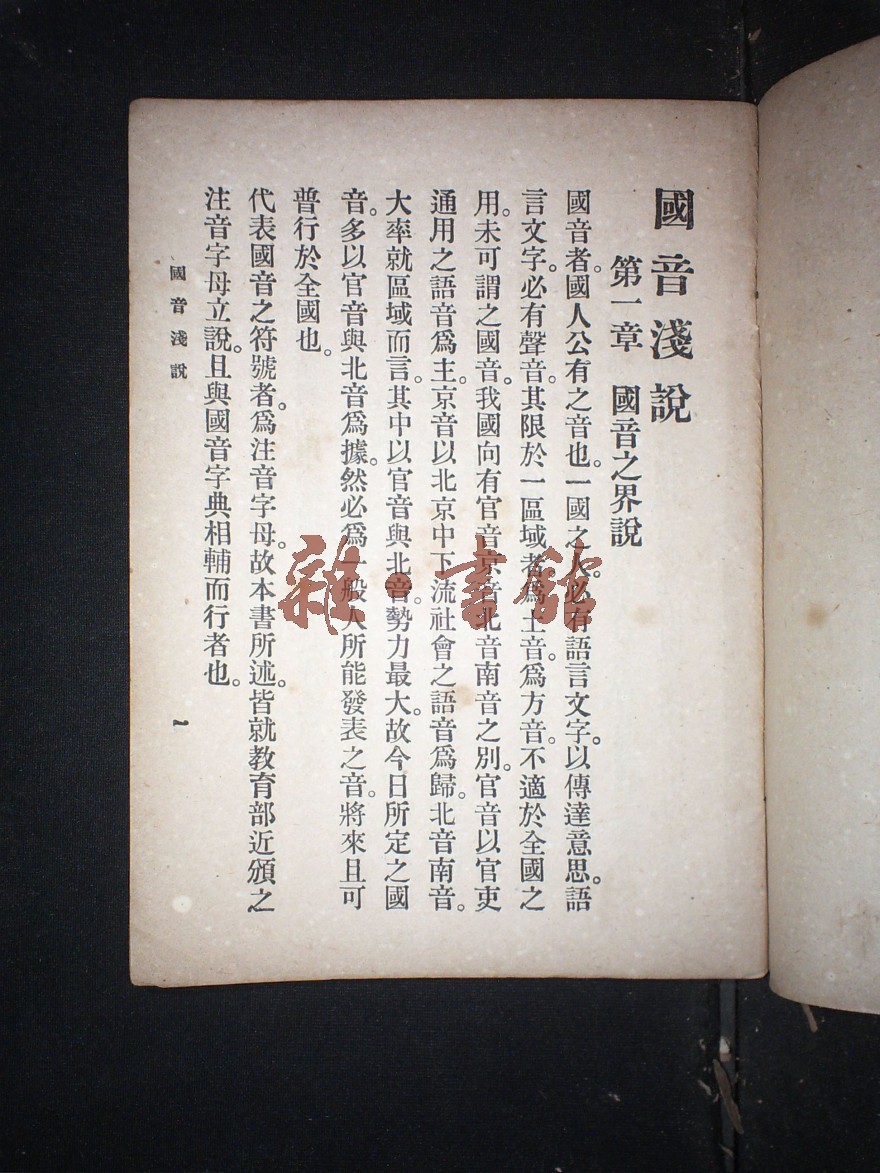 國音淺說
第一章　國音之界說
國音者。國人公有之音也。一國之人。必有語言文字。以傳達意思。語
言文字。必有聲音。其限於一區域者爲土音。爲方音。不適於全國之
用。未可謂之國音。我國向有官音京音北音南音之別。官音以官吏
通用之語音爲主。京音以北京中下流社會之語音爲歸。北音南音。
大率就區域而言。其中以官音與北音。勢力最大。故今日所定之國
音。多以官音與北音爲據。然必爲一般人所能發表之音。將來且可
普行於全國也。
代表國音之符號者。爲注音字母。故本書所述。皆就教育部近頒之
注音字母立說。且與國音字典相輔而行者也。
國音淺說
一
雜·書館